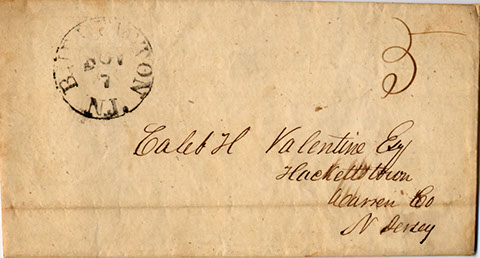 BURLINGTON. N.J.
NOV
7
5
Caleb H Valentine Esq
Hackettstown
Warren Co
N Jersey